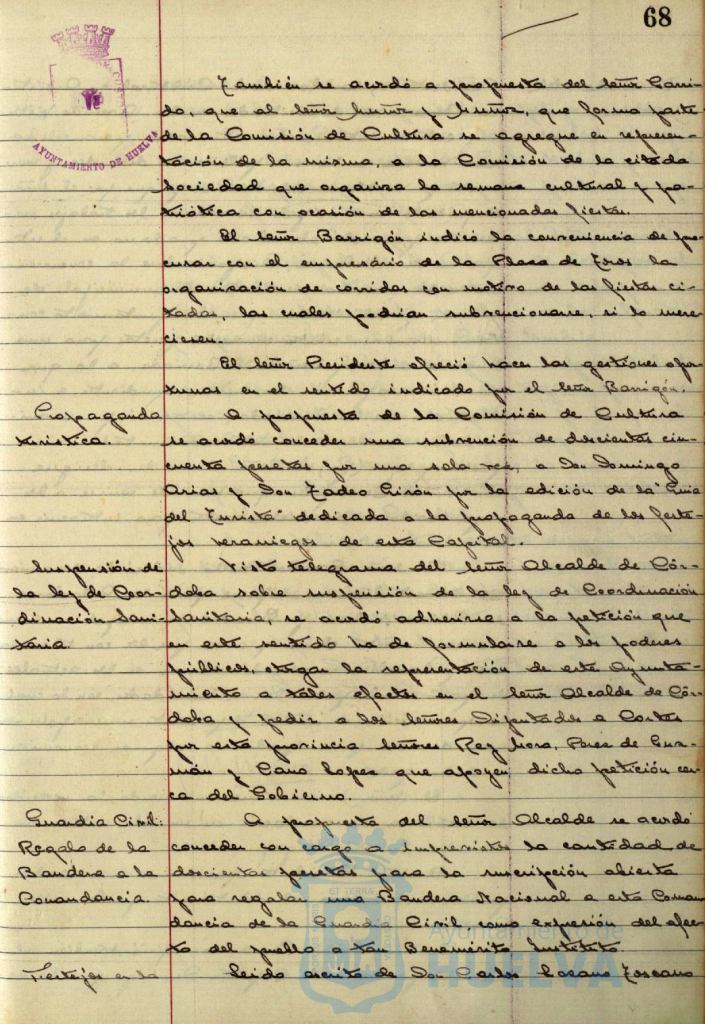 68
AYUNTAMIENTO DE HUELVA
También se acordó a propuesta del Señor Garri-
do, que al Señor Muñoz y Muñoz, que forma parte
de la Comisión de Cultura se agregue en represen-
tación de la misma, a la Comisión de la citada
Sociedad que organiza la semana cultural y pa-
triótica con ocasión de las mencionadas fiestas.
El Señor Barrigón indicó la conveniencia de pro-
curar con el empresario de la Plaza de Toros la
organización de corridas con motivo de las fiestas ci-
tadas, las cuales podrían subvencionarse, si lo mere-
ciesen.
El Señor Presidente ofreció hacer las gestiones opor-
tunas en el sentido indicado por el Señor Barrigón.
Propaganda
turística.
A propuesta de la Comisión de Cultura
se acordó conceder una subvención de doscientas cin-
cuenta pesetas por una sola vez, a Don Domingo
Arias y Don Tadeo Girón por la edición de la "Guia
del Turista" dedicada a la propaganda de los feste-
jos veraniegos de esta Capital.
Suspensión de
la ley de Coor-
dinación Sani-
taria
Visto telegrama del Señor Alcalde de Cór-
doba sobre suspensión de la ley de Coordinación
Sanitaria, se acordó adherirse a la petición que
en este sentido ha de formularse a los poderes
públicos, otorgar la representación de este Ayunta-
miento a tales efectos en el Señor Alcalde de Cór-
doba y pedir a los Señores Diputados a Cortes
por esta provincia Señores Rey Mora, Perez de Guz-
mán y Cano Lopez que apoyen dicha petición cer-
ca del Gobierno.
Guardia Civil:
Regalo de la
Bandera a la
Comandancia.
A propuesta del Señor Alcalde se acordó
conceder con cargo a imprevistos la cantidad de
doscientas pesetas para la suscripción abierta
para regalar una Bandera Nacional a esta Coman-
dancia de la Guardia Civil, como expresión del afec-
to del pueblo a tan Benemérito Instituto.
Festejos en la
Leido escrito de Don Carlos Lozano Toscano
HUELVA